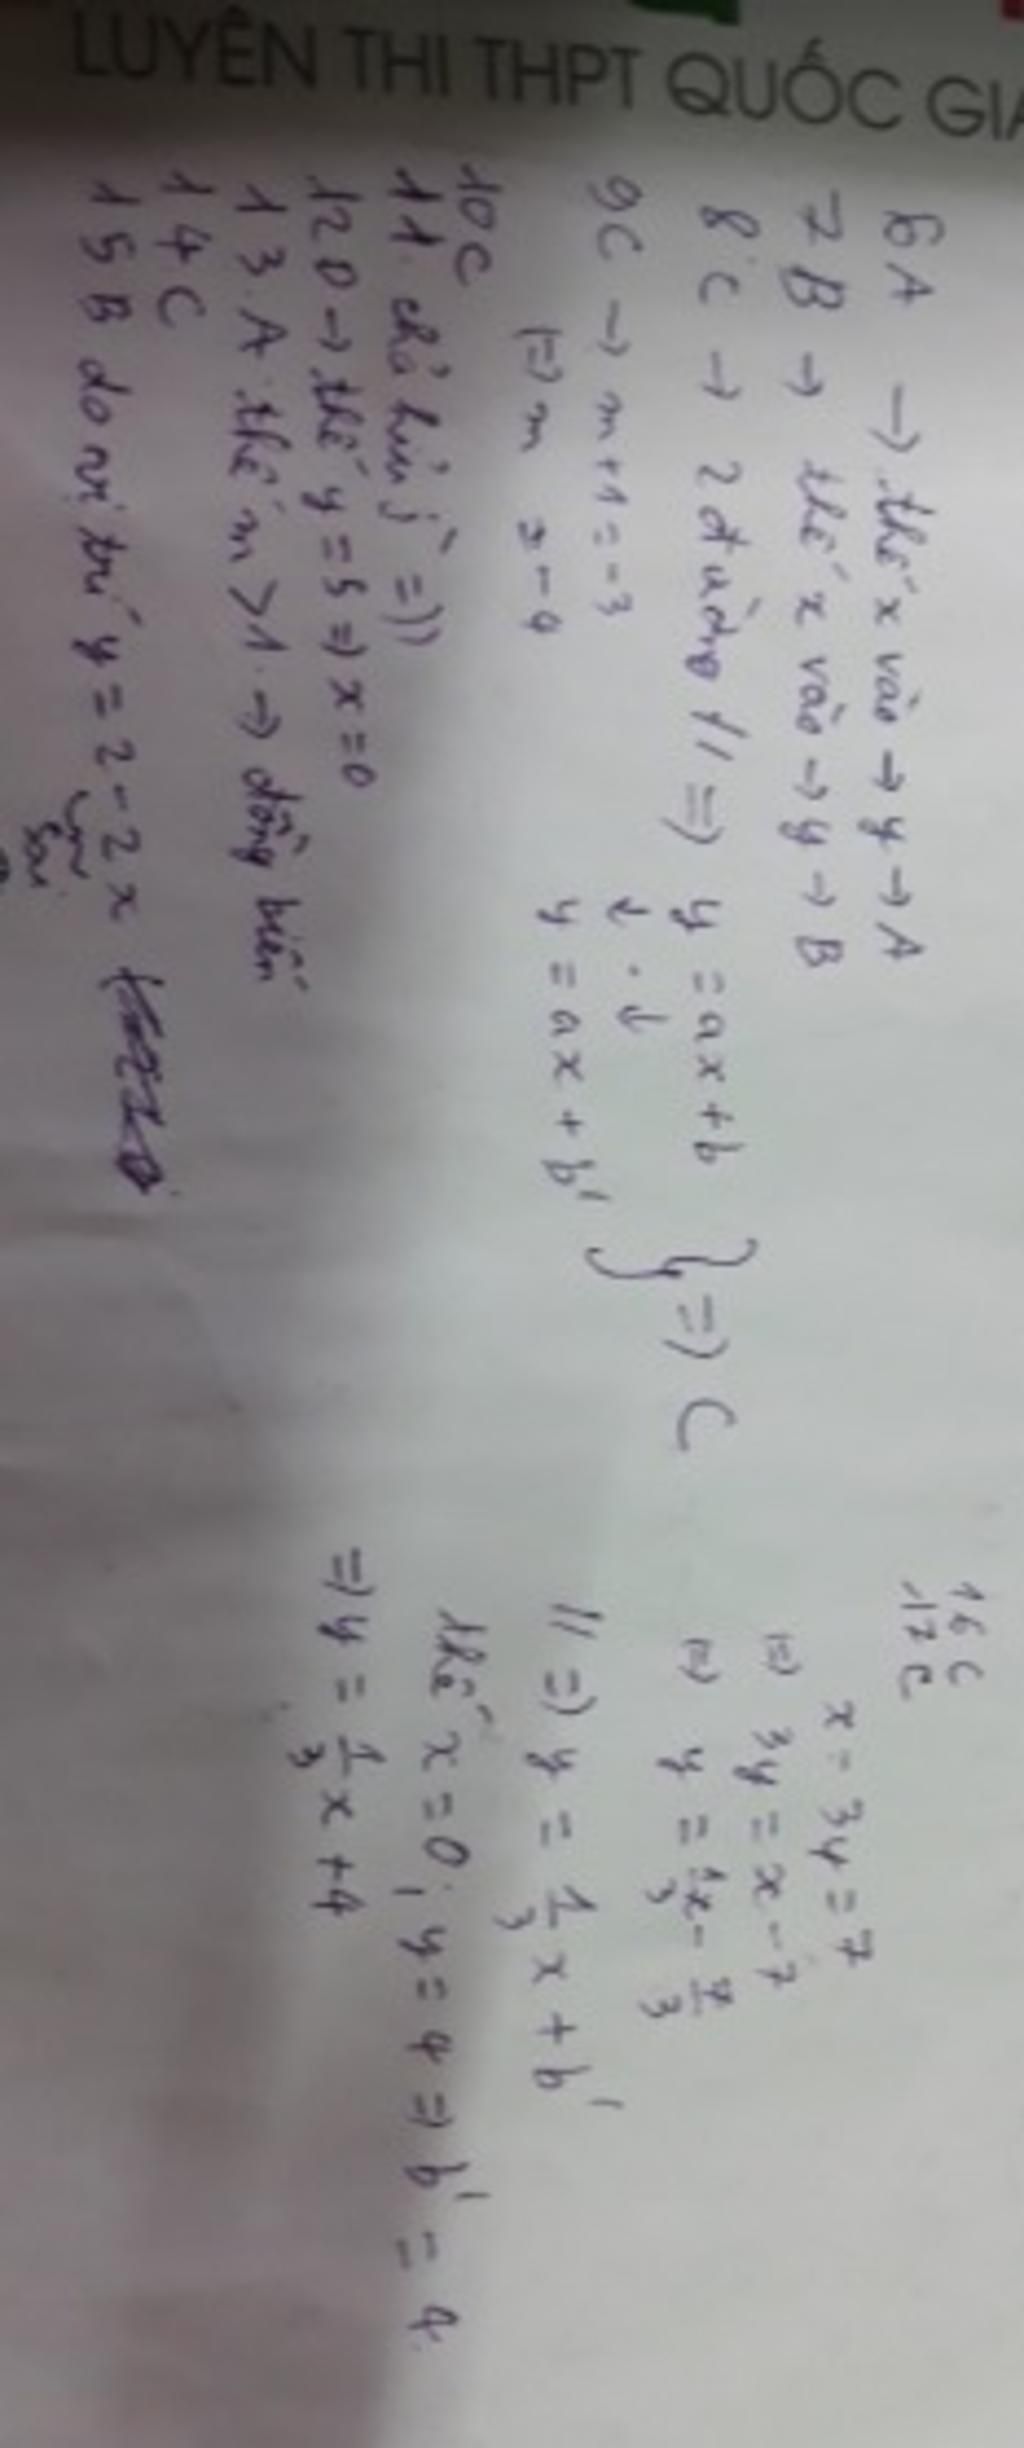 LUYỆN THI THPT QUỐC GIA
6A → thế x vào → y → A
7B → thế x vào → y → B
8.C → 2 đường // => y = ax + b
↓ . ↓
y = ax + b'
} => C
9C → m + 1 = -3
(=) m = -4
10C
11. chả hiểu j =))
12D → thế y = 5 => x = 0
13. A thế m > 1 → đồng biến
14C
15B do vị trí y = 2 - 2x
sai
16C
17C
x - 3y = 7
(=) 3y = x - 7
(=) y = 1/3 x - 7/3
// => y = 1/3 x + b'
thế x = 0; y = 4 => b' = 4
=> y = 1/3 x + 4